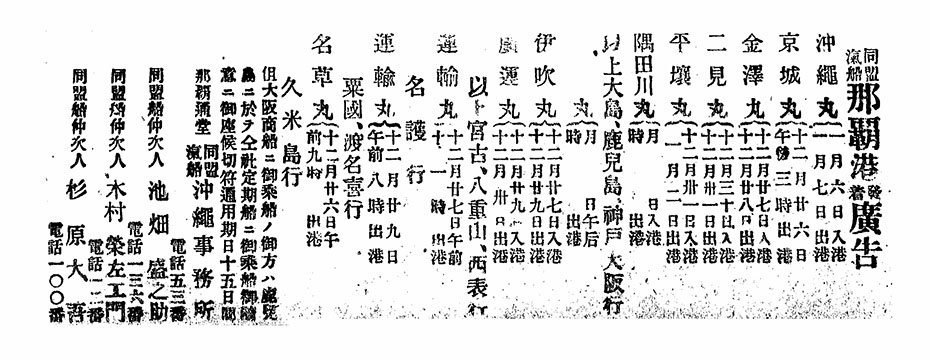 同盟汽船 那覇港 發着 廣告
沖繩丸 一月六日入港 一月七日出港
京城丸 十二月廿六日 午後三時出港
金澤丸 十二月 入港 十二月廿八日出港
二見丸 十二月三十日入港 十二月卅一日出港
平壤丸 十二月卅一日入港 一月二日出港
隅田川丸 月 日入港 時 出港
丸 月 日午后 時 出港
以上大島、鹿兒島、神戸、大阪行
伊吹丸 十二月廿七日入港 十二月廿九日出港
廣運丸 十二月廿九日入港 十二月卅日出港
以上宮古、八重山、西表行
運輸丸 十二月廿七日午前 十一時 出港
名護行
運輸丸 十二月廿九日 午前八時出港
粟國、渡名喜行
名草丸 十二月廿六日午前九時 出港
久米島行
但大阪商船ニ御乘船ノ御方ハ鹿兒
島ニ於テ仝社定期船ニ御乘船御隨
意ニ御座候切符通用期日十五日間
那覇通堂 同盟汽船 沖繩事務所
電話五三番
同盟船仲次人 池畑盛之助
電話一三六番
同盟船仲次人 木村榮左工門
電話一二番
同盟船仲次人 杉原大吾
電話一〇〇番